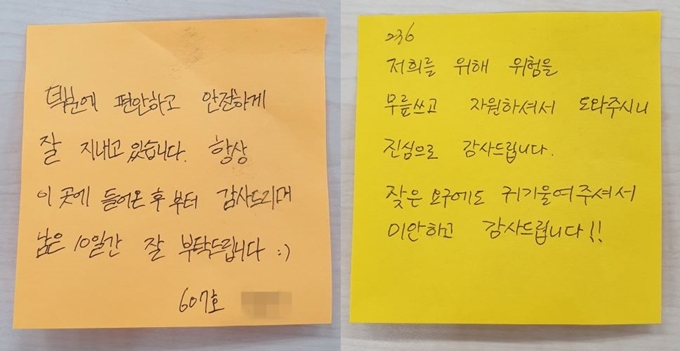 덕분에 편안하고 안전하게
잘 지내고 있습니다. 항상
이 곳에 들어온 후 부터 감사드리며
남은 10일간 잘 부탁드립니다 :)
607호
236
저희를 위해 위험을
무릎쓰고 자원하셔서 도와주시니
진심으로 감사드립니다.
잦은 요구에도 귀기울여주셔서
미안하고 감사드립니다!!